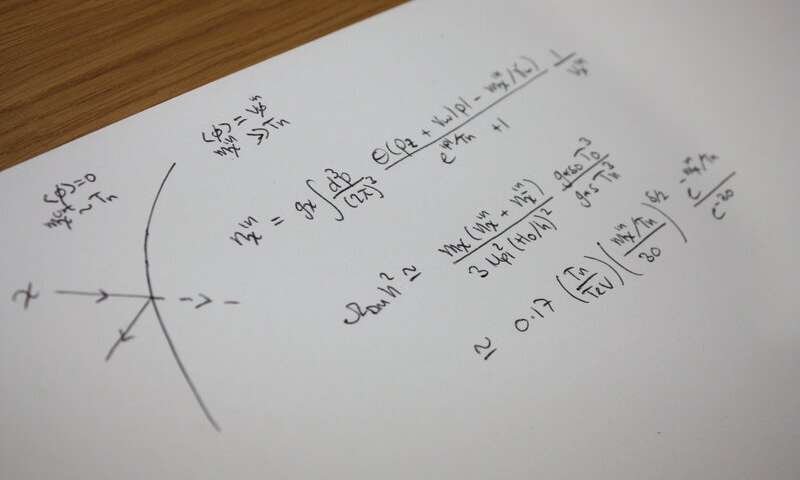 ⟨φ⟩ = 0
~ Tₙ
⟨φ⟩ = v_φⁱⁿ
m_χⁱⁿ ≫ Tₙ
χ
n_χⁱⁿ = g_χ ∫ d³p/(2π)³ Θ(p_z + v_w|p| - m_χⁱⁿ/γ_w)/(e^{|p|/Tₙ} + 1) 1/v_χⁱⁿ
Ω_DM h² ≃ m_χ(n_χⁱⁿ + n_χ̄ⁱⁿ)/(3 M_Pl² (H₀/h)²) g_{*S0} T₀³/(g_{*S} Tₙ³)
≃ 0.17 (Tₙ/TeV) (m_χⁱⁿ/Tₙ / 30)^{5/2} e^{-m_χⁱⁿ/Tₙ}/e^{-30}